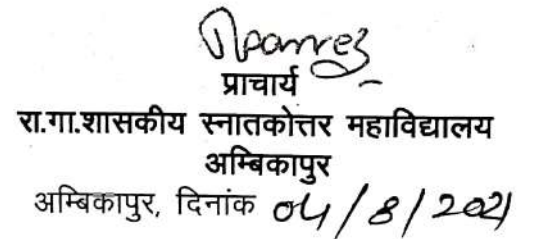 प्राचार्य
रा.गा.शासकीय स्नातकोत्तर महाविद्यालय
अम्बिकापुर
अम्बिकापुर, दिनांक 04/8/2021